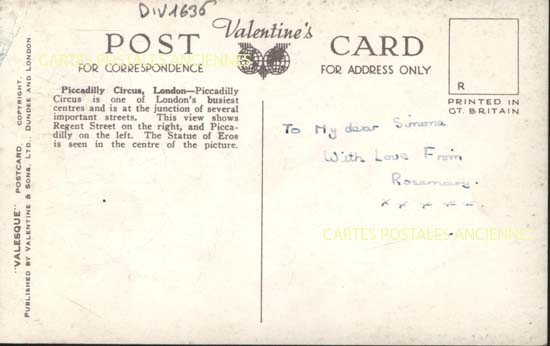 DIV1635
Valentine's
POST CARD
FOR CORRESPONDENCE
FOR ADDRESS ONLY
CARTES POSTALES ANCIENNES
R
PRINTED IN
GT. BRITAIN
Piccadilly Circus, London—Piccadilly
Circus is one of London's busiest
centres and is at the junction of several
important streets. This view shows
Regent Street on the right, and Picca-
dilly on the left. The Statue of Eros
is seen in the centre of the picture.
To My dear Simone
With Love From
Rosemary.
x x x x x
CARTES POSTALES ANCIENNES
"VALESQUE" POSTCARD. COPYRIGHT.
PUBLISHED BY VALENTINE & SONS, LTD., DUNDEE AND LONDON